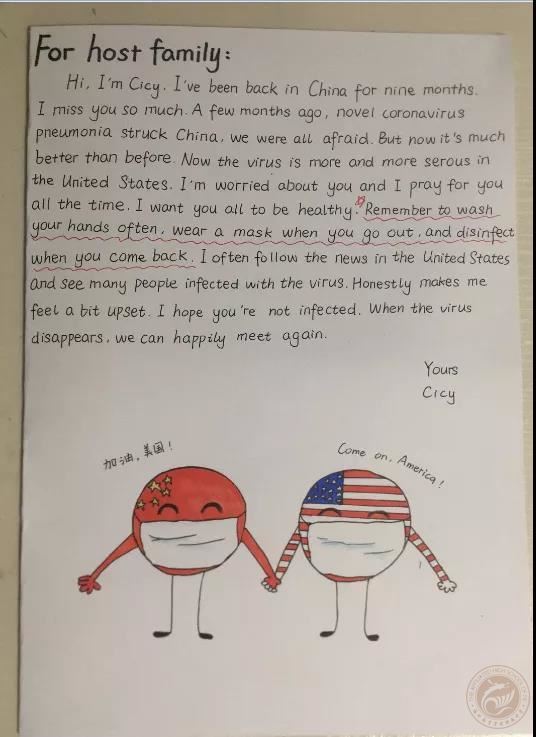 For host family:
Hi, I'm Cicy. I've been back in China for nine months.
I miss you so much. A few months ago, novel coronavirus
pneumonia struck China, we were all afraid. But now it's much
better than before. Now the virus is more and more serous in
the United States. I'm worried about you and I pray for you
all the time. I want you all to be healthy. Remember to wash
your hands often, wear a mask when you go out, and disinfect
when you come back. I often follow the news in the United States
and see many people infected with the virus. Honestly makes me
feel a bit upset. I hope you're not infected. When the virus
disappears, we can happily meet again.
Yours
Cicy
加油,美国!
Come on, America!